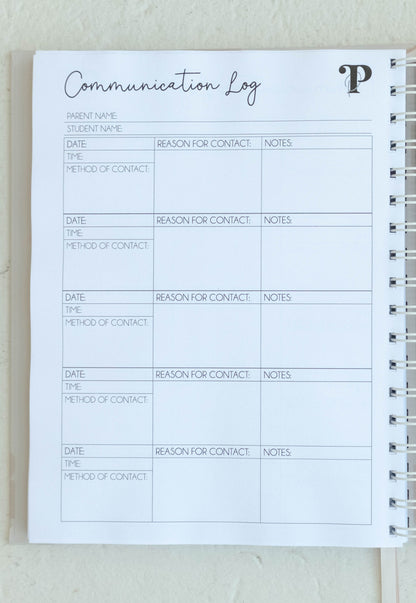 Communication Log
P
PARENT NAME:
STUDENT NAME:
DATE: REASON FOR CONTACT: NOTES:
TIME:
METHOD OF CONTACT:
DATE: REASON FOR CONTACT: NOTES:
TIME:
METHOD OF CONTACT:
DATE: REASON FOR CONTACT: NOTES:
TIME:
METHOD OF CONTACT:
DATE: REASON FOR CONTACT: NOTES:
TIME:
METHOD OF CONTACT:
DATE: REASON FOR CONTACT: NOTES:
TIME:
METHOD OF CONTACT: